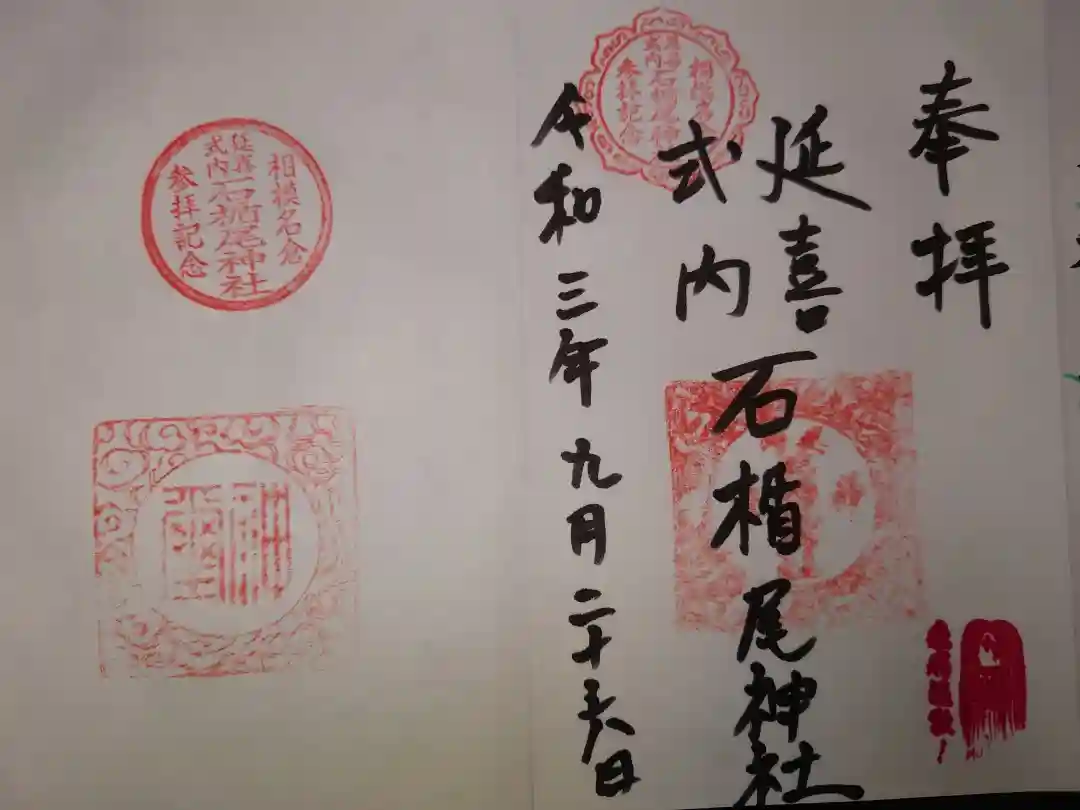 奉拝
延喜
式内
石楯尾神社
令和三年九月二十六日
相模名倉
延喜
式内
石楯尾神社
参拝記念
相模名倉
延喜
式内
石楯尾神社
参拝記念
神璽